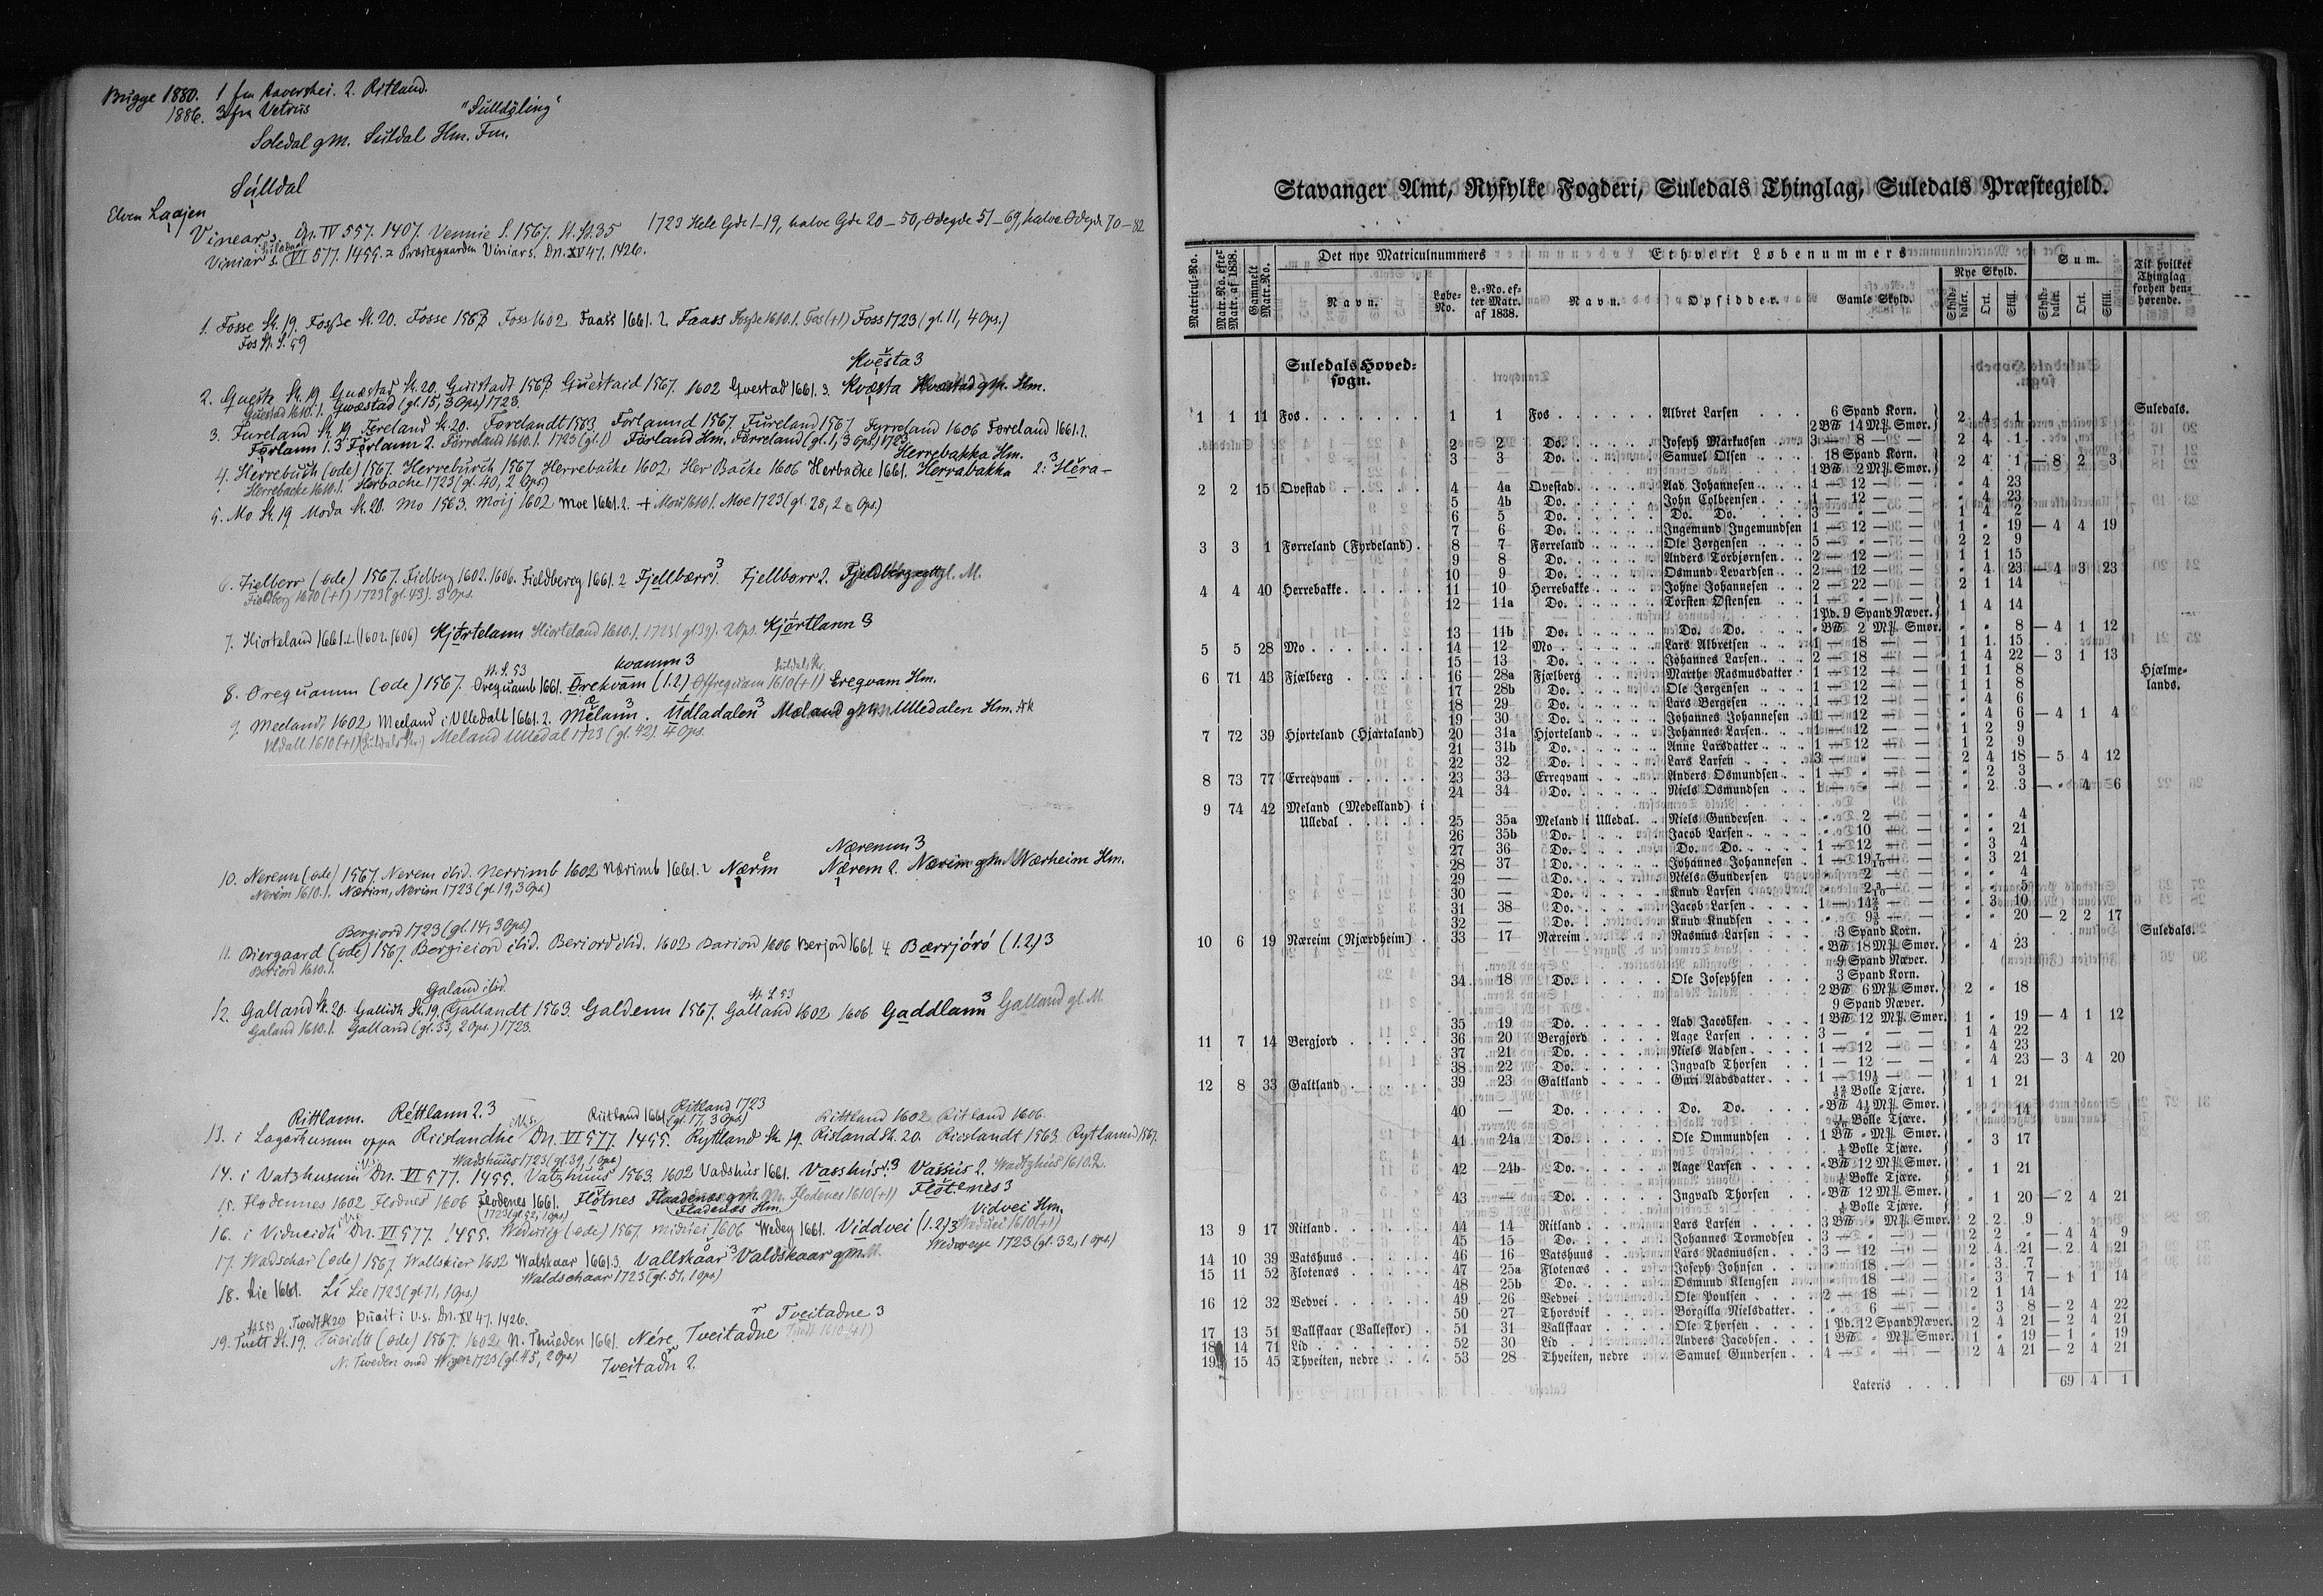 Bugge 1880. 1 fra 2. Ritland.
1886. 3 fra Vetrus "Sulldøling"
Soledal gm. Suldal Hm. Fm.
Sulldal
Elven Laajen
Vinear s. Dn. IV 557. 1407. Vennie S. 1567. St. 35 1723 Hele Gde 1-19, halve Gde 20-50, Ødegde 51-69, halve Ødegde 70-82
Viniar s. VI 577. 1455. Præstegaarden Viniar s. Dn. XV 47. 1426.
1. Fosse St. 19. Fosse St. 20. Fosse 1563 Foss 1602 Faass 1661. 2. Faass Fosse 1610.1. Fos (+1) Foss 1723 (gl. 11, 4 Ops.)
Fos St. S. 59
Kvesta 3
2. Queste St. 19 Quæstad St. 20. Quistadt 1563 Questaid 1567. 1602 Qvestad 1661. 3. Kvæsta Kvæstad gm. Hm.
Questad 1610.1. Qwæstad (gl. 15, 3 Ops) 1723
3. Fureland St. 19 Foreland St. 20. Forelandt 1563 Forlannd 1567. Fureland 1567 Fyrreland 1606 Føreland 1661. 2.
Førlann 1. 3 Førlann 2. Førreland 1610.1. 1723 (gl. 1) Førland Hm. Førreland (gl. 1, 3 Ops) 1723
Herrebakka Hm.
4. Herrebuch (øde) 1567. Herreburch 1567. Herrebacke 1602 Her Backe 1606 Herbache 1661. Herrabakka 2: Hêra-
Herrebacke 1610.1. Herbache 1723 (gl. 40, 2 Ops)
5. Mo St. 19 Moda St. 20. Mo 1563. Moij 1602 Moe 1661. 2. + Mou 1610 1. Moe 1723 (gl. 28, 2 Ops.)
6. Fielberr (øde) 1567. Fielberg 1602. 1606. Fieldberg 1661. 2 Fjellbærr 1. 3 Fjellborr 2. Fjeldberg gl. M.
Fieldberg 1610 (+1) 1723 (gl. 43). 3 Ops.
7. Hiorteland 1661. 2. (1602. 1606) Kjørtelann Hiorteland 1610.1. 1723 (gl 39). 2 Ops. Kjørtlann 3
kvamm 3
8. Orequamm (øde) 1567. Orequamb 1661. Ørekvâm (1. 2.) Offrequam 1610 (+1) Ereqvam Hm.
9. Meelandt 1602 Meeland i Ulledall 1661. 2. Mêlann. 3 Udladalen 3 Mæland gm. Ulledalen Hm.
Uldall 1610 (+1) Meland Ulledal 1723 (gl. 42). 4 Ops.
Næremm 3
10. Neremm (øde) 1567. Nerem ibid. Nerrimb 1602 Nærimb 1661. 2 Nærim Nærem 2. Nærim gm. Nærheim Hm.
Nerim 1610.1. Nærim, Nerim 1723 (gl. 19, 3 Ops.)
Bergiord 1723 (gl. 14, 3 Ops)
11. Biergaard (øde) 1567. Bergieiord ibid. Beriord ibid. 1602 Bariord 1606 Berjord 1661 4. Bærrjóró (1. 2) 3
Beriord 1610.1.
Galand ibid.
12. Galland St. 20. Gallidh St. 19. Gallandt 1563. Galdenn 1567. Galland 1602 1606 Gaddlann 3 Galland gl. M.
Galand 1610.1. Galland (gl. 33, 2 Ops.) 1723.
Rittlann. Réttlann 2. 3 Riitland 1661 Ritland 1723 (gl. 17, 3 Ops) Rittland 1602 Ritland 1606
13. i Lagarhusum oppa Riislandhe Dn. VI 577. 1455. Ryttland St. 19. Risland St. 20. Riislandt 1563 Rytlannd 1567.
Wadshuus 1723 (gl. 39, 1 Ops)
14. i Vatzhusum Dn. VI 577. 1455. Vatzhuus 1563. 1602 Vadshus 1661. Vasshús 1. 3 Vassús 2. Wadtzhus 1610.2.
15. Flodennes 1602 Flodnes 1606 Flodenes 1661. Flötnes Flaadenes gm. Flodenes 1610 (+1) Flötenes 3
1723 (gl. 52, 1 Ops) Flodenæs Hm. Vidvei Hm.
16. i Vidueidh Dn. VI 577 1455. (øde) 1567 1606 Wedey 1661. Viddvei (1. 2) 3 1610 (+1)
Wedweye 1723 (gl. 32, 1 Ops)
17. Wadschar (øde) 1567. Wallskier 1602 Walskaar 1661. 3. Vallskaar 3 Valdskaar gm.
Waldschaar 1723 (gl. 51, 1 Ops)
18. Lie 1661. Li Lie 1723 (gl 71, 1 Ops.)
Twedt St 20 Þueit i V. s. Dn. XV 47. 1426. Tveitadne 3
19. Tuett St. 19. Tueidtt (øde) 1567. 1602 N. Thueden 1661. Nére Tveitadne 1610 (+1)
N. Tweden med Wigen 1723 (gl. 45, 2 Ops) Tveitadn 2.
Stavanger Amt, Ryfylke Fogderi, Suledals Thinglag, Suledals Præstegjeld.
Matricul-No. Matr.No. efter Matr. af 1838. Gammelt Matr.No. Det nye Matriculnummers Ethvert Løbenummers Sum. Til hvilket Thinglag forhen henhørende.
Navn. Løbe-No. L.-No. efter Matr. af 1838. Navn. Opsidder. Gamle Skyld. Nye Skyld. Skylddaler. Ort. Skill. Skylddaler. Ort. Skill.
Suledals Hovedsogn.
1 1 11 Fos 1 1 Fos Albret Larsen 6 Spand Korn. 2 B℔ 14 M℔ Smør. 2 4 1 Suledals.
2 2 Do. Joseph Markussen 3 — 8 — 2 4 1
3 3 Do. Samuel Olsen 18 Spand Korn. 1 B℔ 2 M℔ Smør. 2 4 1 — 8 2 3
2 2 15 Qvestad 4 4a Qvestad Aad Johannesen 1 — 12 — — " 4 23
5 4b Do. John Colbeensen 1 — 12 — — " 4 23
6 5 Do. Do. Do. 3 — " — — 1 4 2
7 6 Do. Ingemund Ingemundsen 1 — 12 — — 1 " 19 — 4 4 19
3 3 1 Førreland (Fyrdeland) 8 7 Førreland Ole Jørgensen 5 — " — — 2 2 9
9 8 Do. Anders Torbjørnsen 2 — 12 — — 1 1 15
10 9 Do. Osmund Levardsen 2 — 12 — — " 4 23 — 4 3 23
4 4 40 Herrebakke 11 10 Herrebakke Johne Johannesen 2 — 22 — — 2 1 14
12 11a Do. Torsten Østensen 1 — " — — 1 Pd. 9 Spand Næver. 1 4 14
13 11b Do. Do. Do. " B℔ 2 M℔ Smør. " " 8 — 4 1 12
5 5 28 Mo 14 12 Mo Lars Albretsen 1 — 18 — — 1 1 15
15 13 Do. Johannes Larsen 2 — 18 — — 1 4 22 — 3 1 13
6 71 43 Fjælberg 16 28a Fjælberg Marthe Rasmusdatter 1 — 12 — — 1 1 8 Hjælmelands.
17 28b Do. Ole Jørgensen 1 — 12 — — 1 1 8
18 29 Do. Lars Bergesen 1 — 12 — — " 4 6
19 30 Do. Johannes Johannesen 1 — 12 — — " 4 6 — 4 1 4
7 72 39 Hjorteland (Hjartaland) 20 31a Hjorteland Johannes Larsen 1 — 12 — — 1 2 9
21 31b Do. Anne Larsdatter 1 — 12 — — 1 2 9
22 32 Do. Lars Larsen 3 — " — — 2 4 18 — 5 4 12
8 73 77 Erreqvam 23 33 Erreqvam Anders Osmundsen 1 — " — — " 2 3
24 34 Do. Niels Osmundsen 1 — " — — " 2 3 — " 4 6
9 74 42 Meland (Medelland) i Ulledal 25 35a Meland i Ulledal Niels Gundersen " — 2 — — " " 4
26 35b Do. Jacob Larsen " — 10 — — " " 21
27 36 Do. Do. Do. 1 — 12 — — " 3 4
28 37 Do. Johannes Johannesen 1 — 19 7/10 — — " 3 21
29 — Do. Niels Gundersen " — 2 — — " " 4
30 — Do. Knud Larsen " — 2 3/10 — — " " 5
31 38 Do. Jacob Larsen 1 — 14 2/5 — — " 3 10
32 — Do. Knud Knudsen " — 9 3/5 — — " " 20 — 2 2 17
10 6 19 Næreim (Njærdheim) 33 17 Næreim Rasmus Larsen 3 Spand Korn. " B℔ 18 M℔ Smør. 9 Spand Næver. " 4 23 Suledals.
34 18 Do. Ole Josephsen 3 Spand Korn. 2 B℔ 6 M℔ Smør. 9 Spand Næver. 2 " 18
35 19 Do. Aad Jacobsen 1 B℔ 12 M℔ Smør. 1 " 19 — 4 1 12
11 7 14 Bergjord 36 20 Bergjord Aage Larsen 3 — " — — 1 4 22
37 21 Do. Niels Aadsen 1 — 12 — — " 4 23
38 22 Do. Ingvald Thorsen 1 — 12 — — " 4 23 — 3 4 20
12 8 33 Galtland 39 23 Galtland Guri Aadsdatter 1 — 19 1/2 — — Bolle Tjære. 1 1 21
40 — Do. Do. Do. " B℔ 4 1/2 M℔ Smør. Bolle Tjære. " " 14
41 24a Do. Ole Ommundsen 1 B℔ " M℔ Smør. 1/4 Bolle Tjære. " 3 17
42 24b Do. Aage Larsen " B℔ 12 M℔ Smør. 1/4 Bolle Tjære. " 1 21
43 — Do. Ingvald Thorsen " B℔ 12 M℔ Smør. 1/4 Bolle Tjære. " 1 20 — 2 4 21
13 9 17 Ritland 44 14 Ritland Lars Larsen 3 B℔ " M℔ Smør. 2 2 9
45 15 Do. Johannes Tormodsen 3 — " — — 2 2 " — 4 4 9
14 10 39 Vatshuus 46 16 Vatshuus Lars Rasmussen 3 — 12 — — 2 4 21 — 2 4 21
15 11 52 Flotenæs 47 25a Flotenæs Joseph Johnsen " — 18 — — " 3 7
48 25b Do. Osmund Klengsen " — 18 — — " 3 7 — 1 1 14
16 12 32 Vedvei 49 26 Vedvei Ole Poulsen 2 — 18 — — 2 1 14
50 27 Thorsvik Borgilla Nielsdatter " — 6 — — " 3 8 — 2 4 22
17 13 51 Vallskaar (Valleskor) 51 31 Vallskaar Ole Thorsen 1 Pd. 12 Spand Næver. 2 4 21 — 2 4 21
18 14 71 Lid 52 30 Lid Anders Jacobsen 1 B℔ " M℔ Smør. 1 " 19 — 1 " 19
19 15 45 Thveiten, nedre 53 28 Thveiten, nedre Samuel Gundersen 4 — " — — 2 4 21 — 2 4 21
Lateris 69 4 1